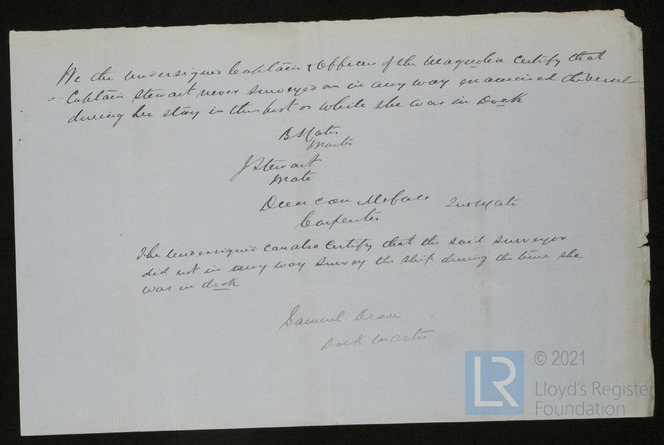 We the undersigned Captain & Officers of the Magnolia Certify that
Captain Stewart never surveyed or in any way examined the vessel
during her stay in this port or while she was in Dock
B Yates
Master
J Stewart
Mate
Duncan 2nd Mate
Carpenter
The Undersigned can also Certify that the said surveyor
did not in any way survey the ship during the time she
was in dock
Samuel Dean
Dock Master
LR
© 2021
Lloyd's Register
Foundation